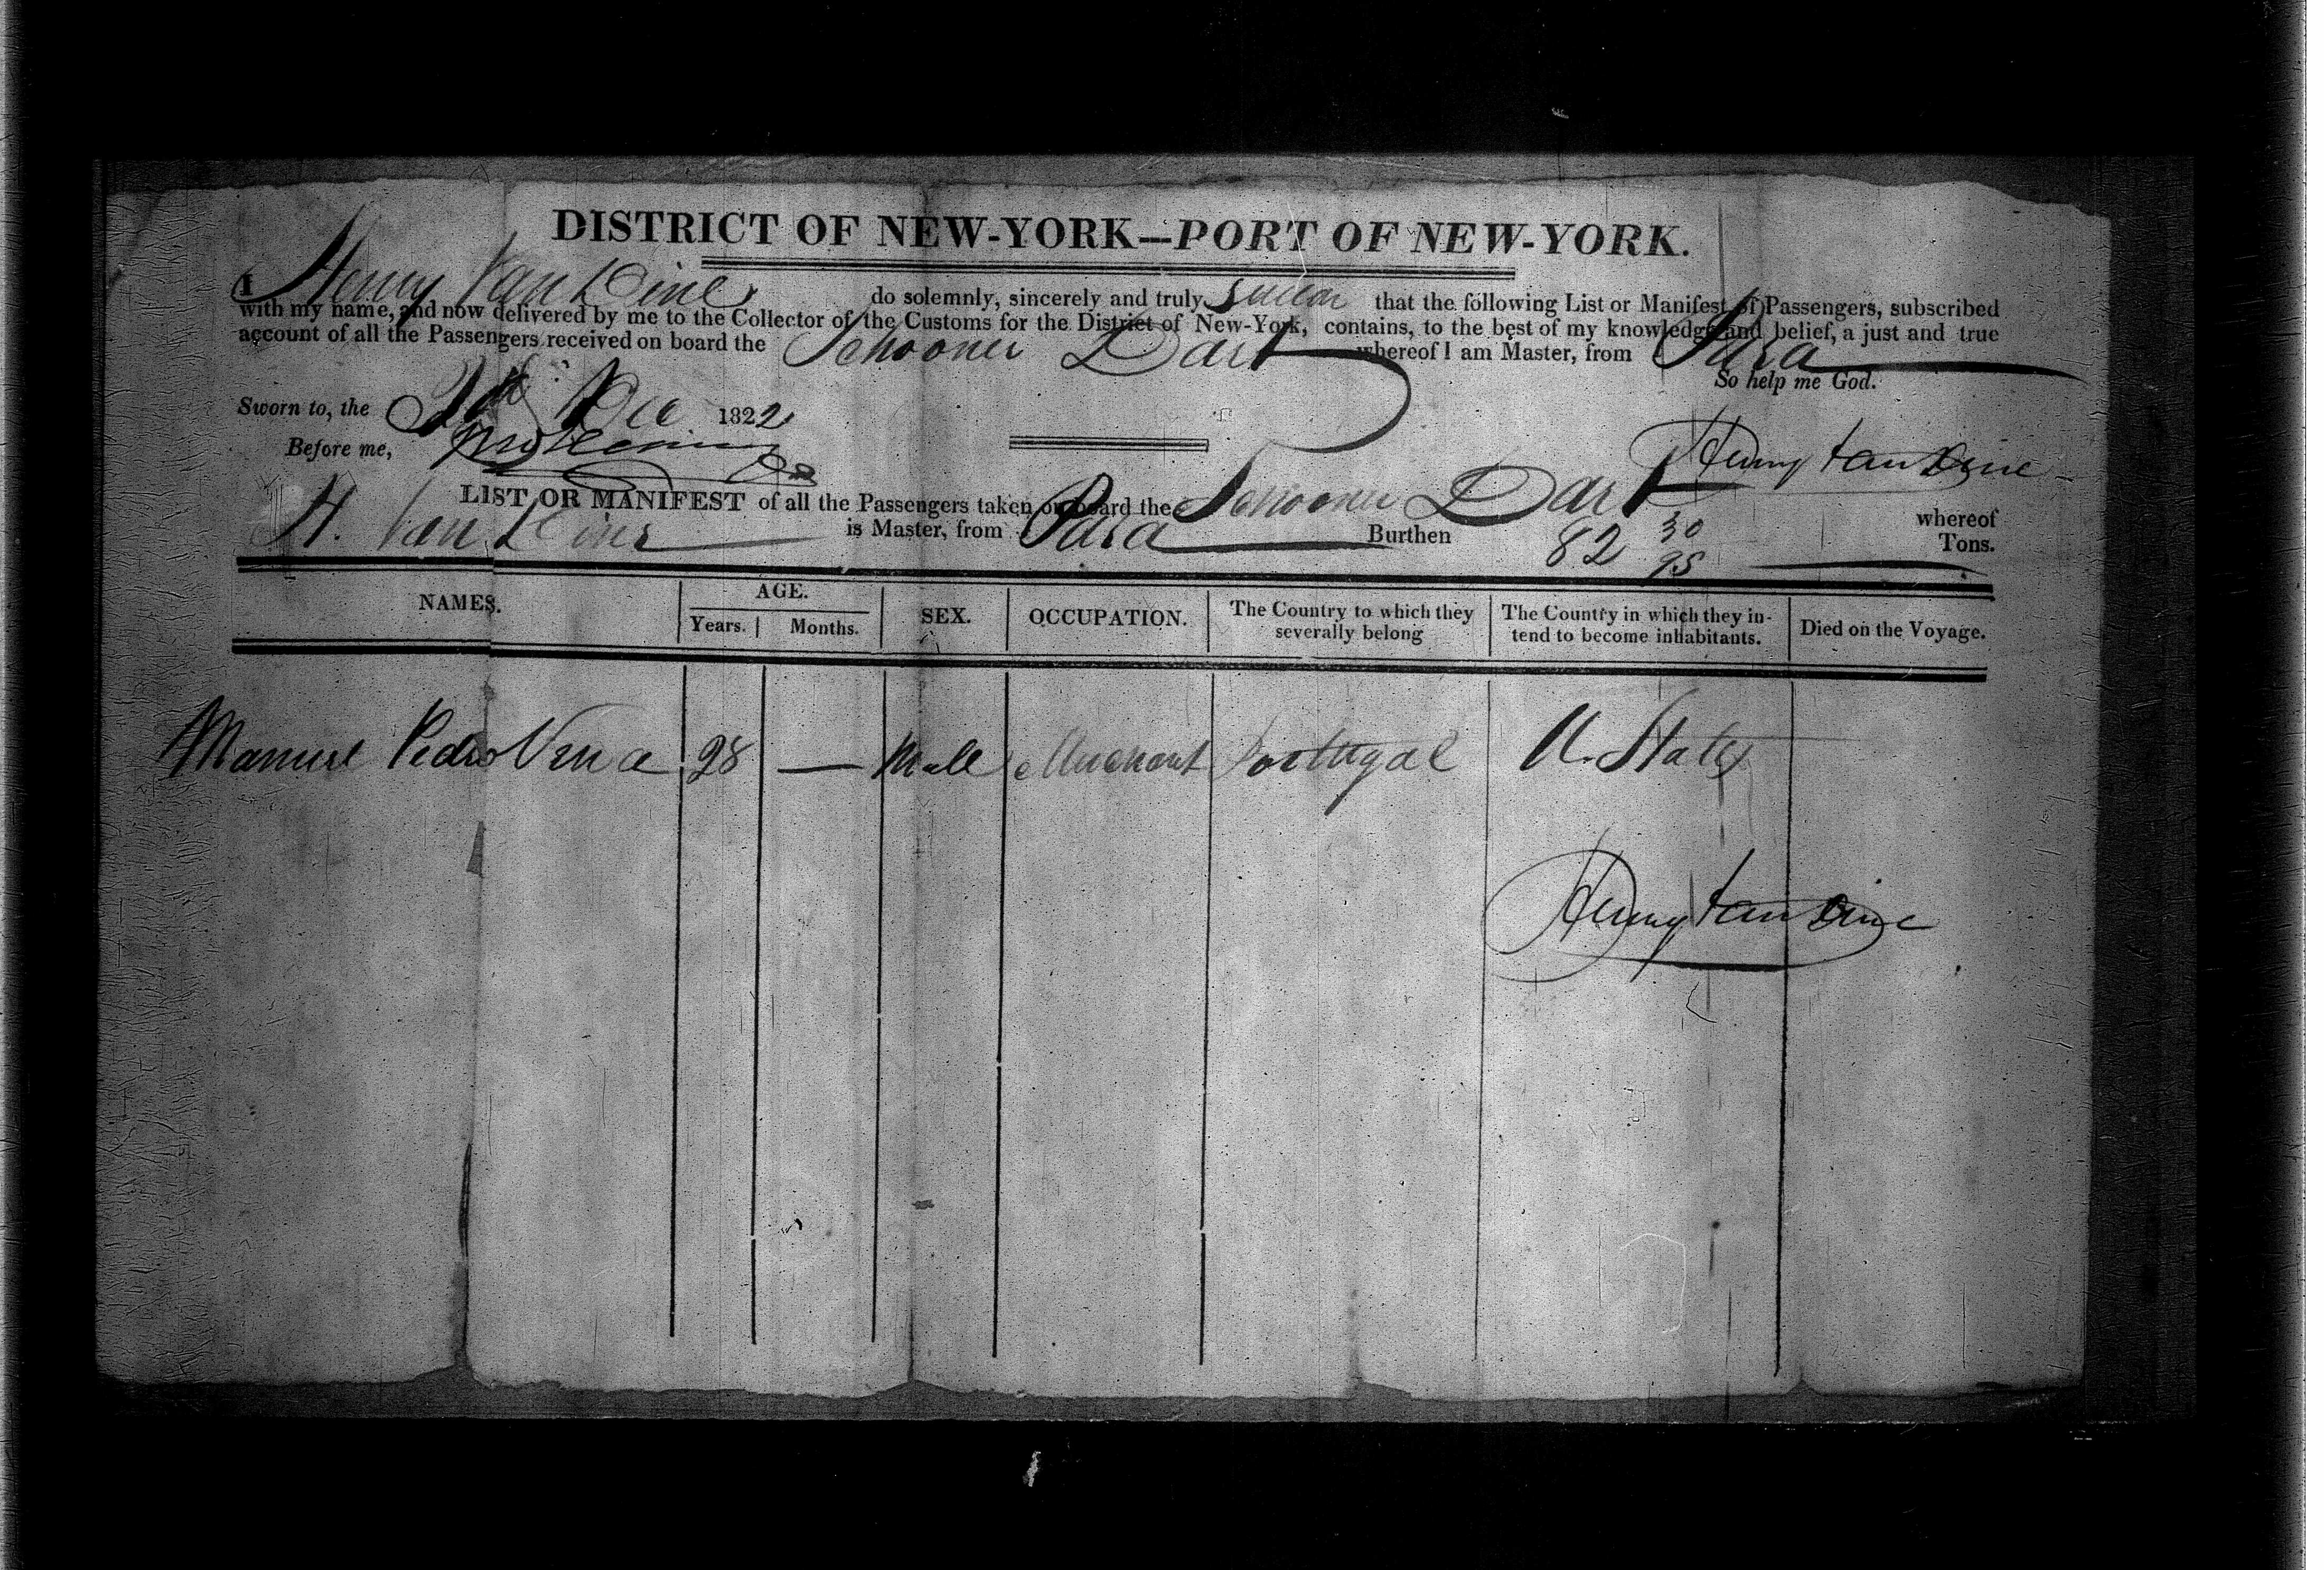 DISTRICT OF NEW-YORK—PORT OF NEW-YORK.
I Henry Van Dine do solemnly, sincerely and truly swear that the following List or Manifest of Passengers, subscribed
with my name, and now delivered by me to the Collector of the Customs for the District of New-York, contains, to the best of my knowledge and belief, a just and true
account of all the Passengers received on board the Schooner Dart whereof I am Master, from Para
So help me God.
Sworn to, the Dec 1822
Before me,
Henry Van Dine
LIST OR MANIFEST of all the Passengers taken on board the Schooner Dart whereof
H. Van Dine is Master, from Para Burthen 82 30/95 Tons.
NAMES. AGE. Years. Months. SEX. OCCUPATION. The Country to which they severally belong The Country in which they intend to become inhabitants. Died on the Voyage.
Manuel Pedro 28 — Male Merchant Portugal U. States
Henry Van Dine